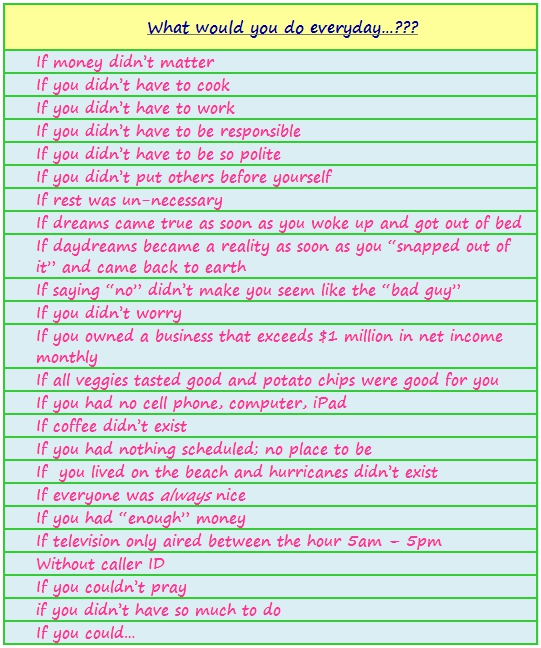 What would you do everyday...???
If money didn't matter
If you didn't have to cook
If you didn't have to work
If you didn't have to be responsible
If you didn't have to be so polite
If you didn't put others before yourself
If rest was un-necessary
If dreams came true as soon as you woke up and got out of bed
If daydreams became a reality as soon as you “snapped out of
it” and came back to earth
If saying “no” didn't make you seem like the “bad guy”
If you didn't worry
If you owned a business that exceeds $1 million in net income
monthly
If all veggies tasted good and potato chips were good for you
If you had no cell phone, computer, iPad
If coffee didn't exist
If you had nothing scheduled; no place to be
If  you lived on the beach and hurricanes didn't exist
If everyone was always nice
If you had “enough” money
If television only aired between the hour 5am – 5pm
Without caller ID
If you couldn't pray
if you didn't have so much to do
If you could...